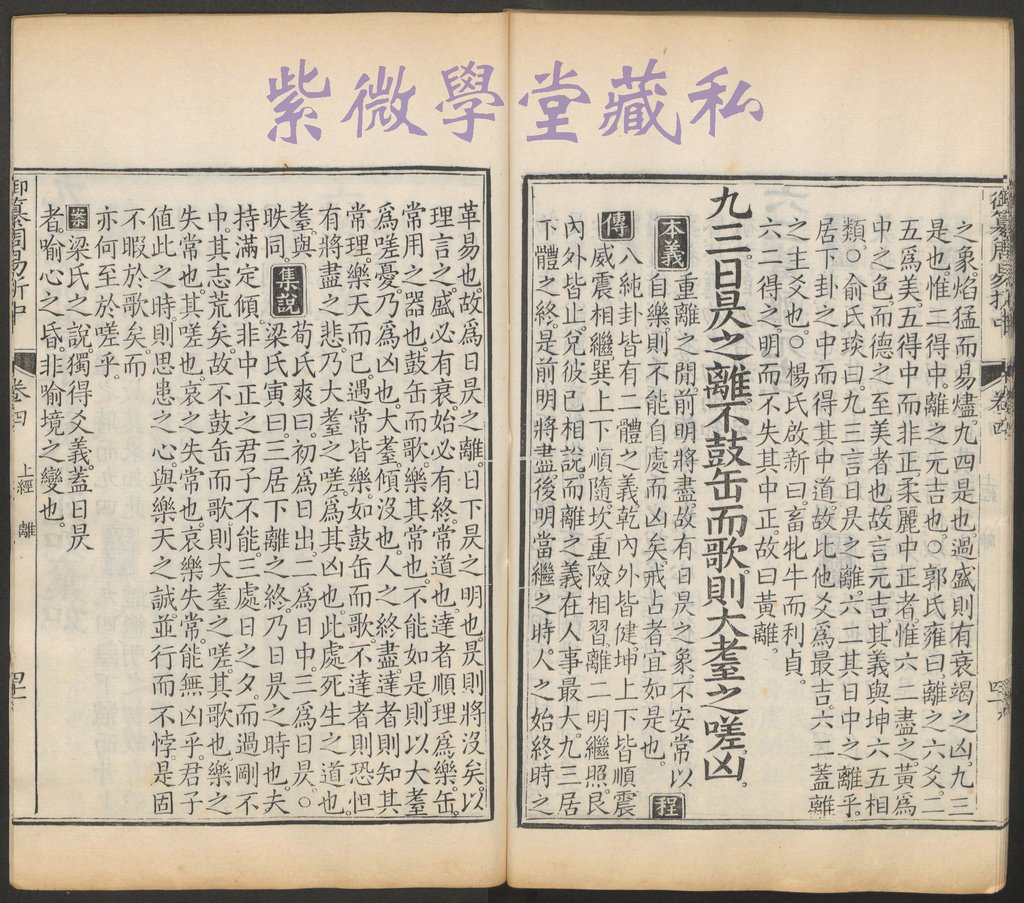 紫微學堂藏私
御纂周易折中 卷四
之象。焰猛而易燼。九四是也。過盛則有衰竭之凶。九三
是也。惟二得中。離之元吉也。○郭氏雍曰。離之六爻。二
五爲美。五得中而非正。柔麗中正者。惟六二盡之。黃爲
中之色。而德之至美者也。故言元吉。其義與坤六五相
類。○俞氏琰曰。九三言日昃之離。六二其日中之離乎。
居下卦之中。而得其中道。故比他爻爲最吉。六二蓋離
之主爻也。○楊氏啟新曰。畜牝牛而利貞。
六二得之。明而不失其中正。故曰黃離。
九三。日昃之離。不鼓缶而歌。則大耋之嗟。凶。
本義 重離之間。前明將盡。故有日昃之象。不安常以
自樂。則不能自處而凶矣。戒占者宜如是也。 程
傳 八純卦皆有二體之義。乾內外皆健。坤上下皆順。震
威震相繼。巽上下順隨。坎重險相習。離二明繼照。艮
內外皆止。兌彼己相說。而離之義。在人事最大。九三居
下體之終。是前明將盡。後明當繼之時。人之始終。時之
革易也。故爲日昃之離。日下昃之明也。昃則將沒矣。以
理言之。盛必有衰。始必有終。常道也。達者順理爲樂。缶
常用之器也。鼓缶而歌。樂其常也。不能如是。則以大耋
爲嗟憂。乃爲凶也。大耋。傾沒也。人之終盡。達者則知其
常理。樂天而已。遇常皆樂。如鼓缶而歌。不達者則恐怛
有將盡之悲。乃大耋之嗟。爲其凶也。此處死生之道也。
耋與
昳同。 集說 荀氏爽曰。初爲日出。二爲日中。三爲日昃。○
梁氏寅曰。三居下離之終。乃日昃之時也。夫
持滿定傾。非中正之君子不能。三處日之夕。而過剛不
中。其志荒矣。故不鼓缶而歌。則大耋之嗟。其歌也。樂之
失常也。其嗟也。哀之失常也。哀樂失常。能無凶乎。君子
值此之時。則思患之心。與樂天之誠。並行而不悖。是固
不暇於歌矣。而
亦何至於嗟乎。
案 梁氏之說。獨得爻義。蓋日昃
者。喻心之昏。非喻境之變也。
御纂周易折中 卷四 上經 離